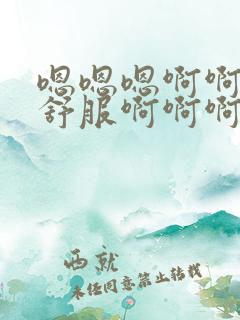 嗯嗯嗯啊啊
舒服啊啊啊
西就
未经同意禁止转载